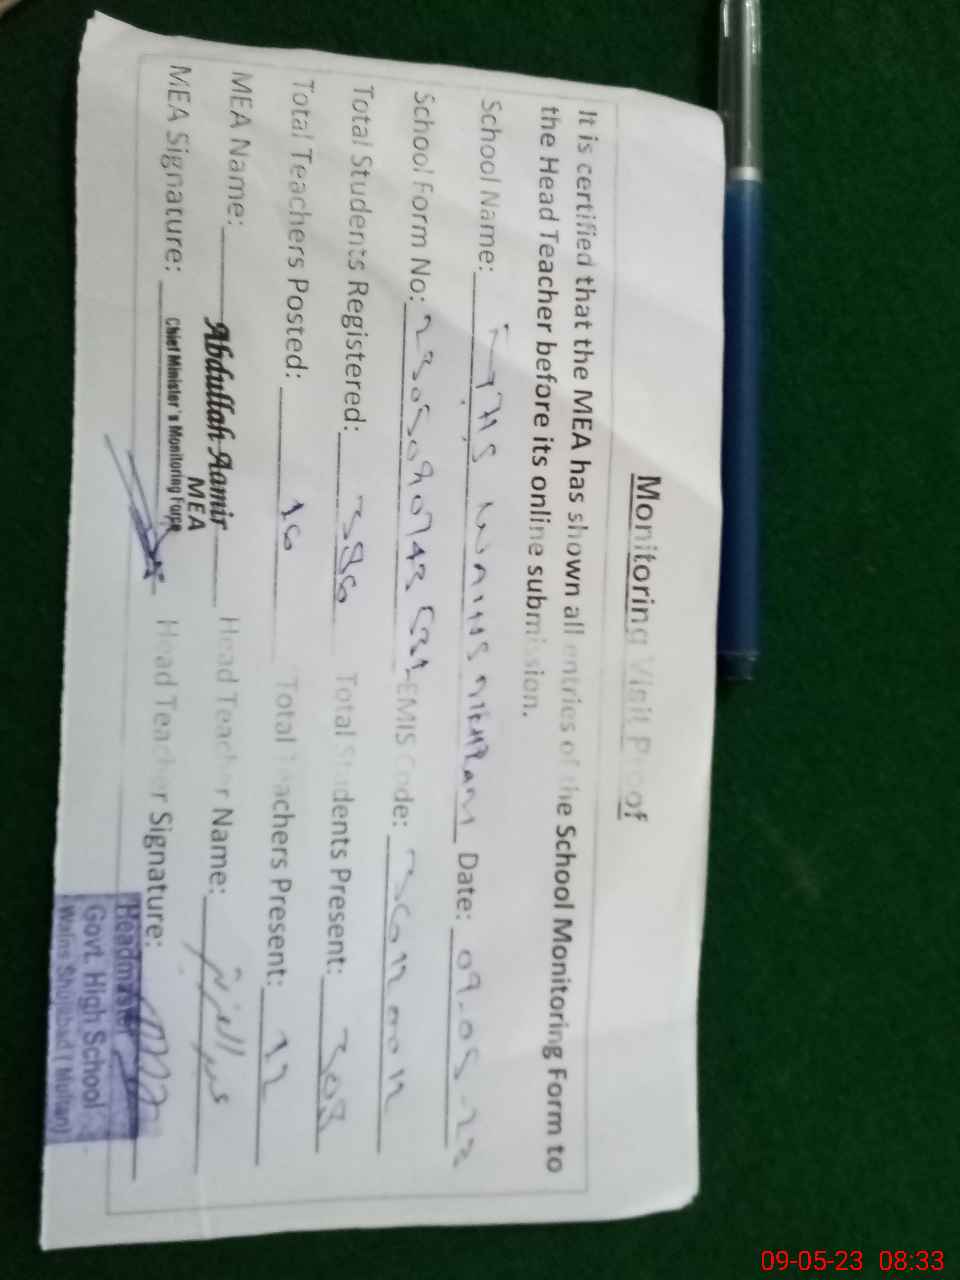 Monitoring Visit Proof
It is certified that the MEA has shown all entries of the School Monitoring Form to
the Head Teacher before its online submission.
School Name: Date: 09-05-23
School Form No: EMIS Code:
Total Students Registered: 386 Total Students Present: 308
Total Teachers Posted: 16 Total Teachers Present: 12
MEA Name: Abdullah Aamir Head Teacher Name: عبدالعزیز
MEA
MEA Signature: Chief Minister's Monitoring Force Head Teacher Signature:
Headmaster
Govt. High School
Wains Shujabad (Multan)
09-05-23 08:33